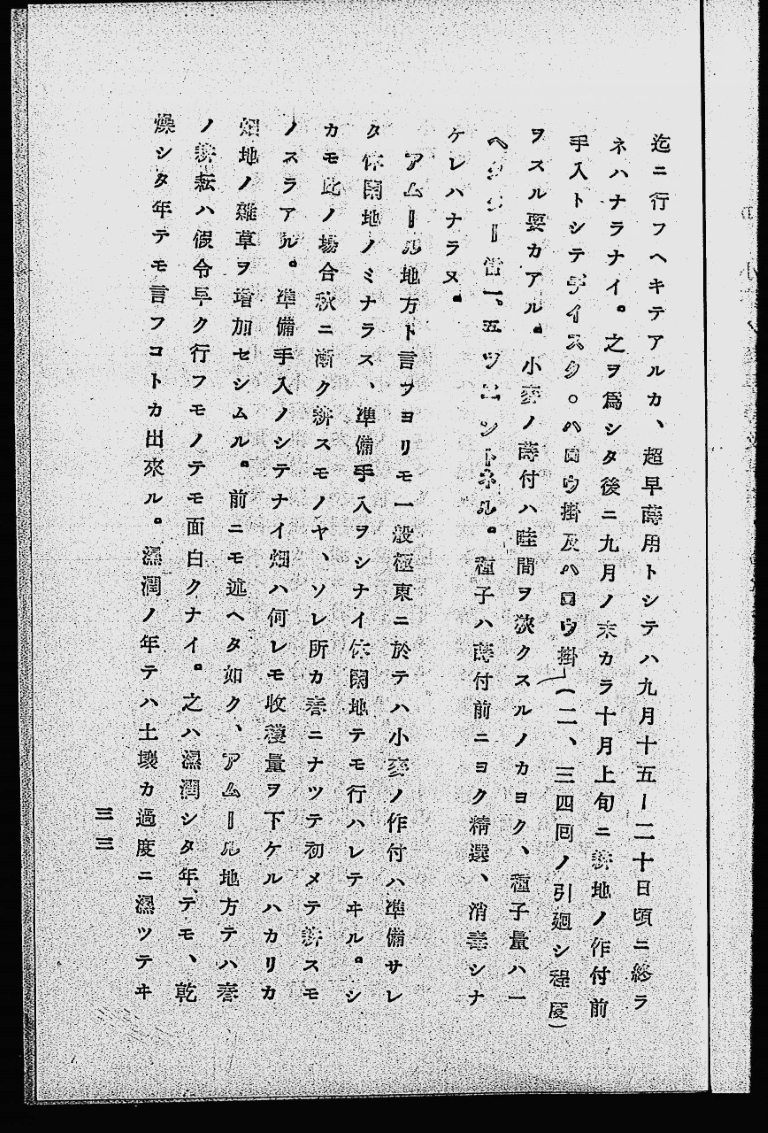 迄ニ行フヘキテアルカ、超早蒔用トシテハ九月十五ー二十日頃ニ終ラ
ネハナラナイ。之ヲ爲シタ後ニ九月ノ末カラ十月上旬ニ耕地ノ作付前
手入トシテデイスク。ハロウ掛及ハロウ掛(二、三四囘ノ引廻シ程度)
ヲスル要カアル。小麥ノ蒔付ハ畦間ヲ狹クスルノカヨク、種子量ハ一
ヘクター當一、五ツエントネル。種子ハ蒔付前ニヨク精選、消毒シナ
ケレハナラヌ。
アムール地方ト言フヨリモ一般極東ニ於テハ小麥ノ作付ハ準備サレ
タ休閑地ノミナラス、準備手入ヲシナイ休閑地テモ行ハレテヰル。シ
カモ此ノ場合秋ニ漸ク耕スモノヤ、ソレ所カ春ニナツテ初メテ耕スモ
ノスラアル。準備手入ノシテナイ畑ハ何レモ收穫量ヲ下ケルハカリカ
畑地ノ雜草ヲ增加セシムル。前ニモ述ヘタ如ク、アムール地方テハ春
ノ耕耘ハ假令早ク行フモノテモ面白クナイ。之ハ濕潤シタ年テモ、乾
燥シタ年テモ言フコトカ出來ル。濕潤ノ年テハ土壤カ過度ニ濕ツテヰ
三三